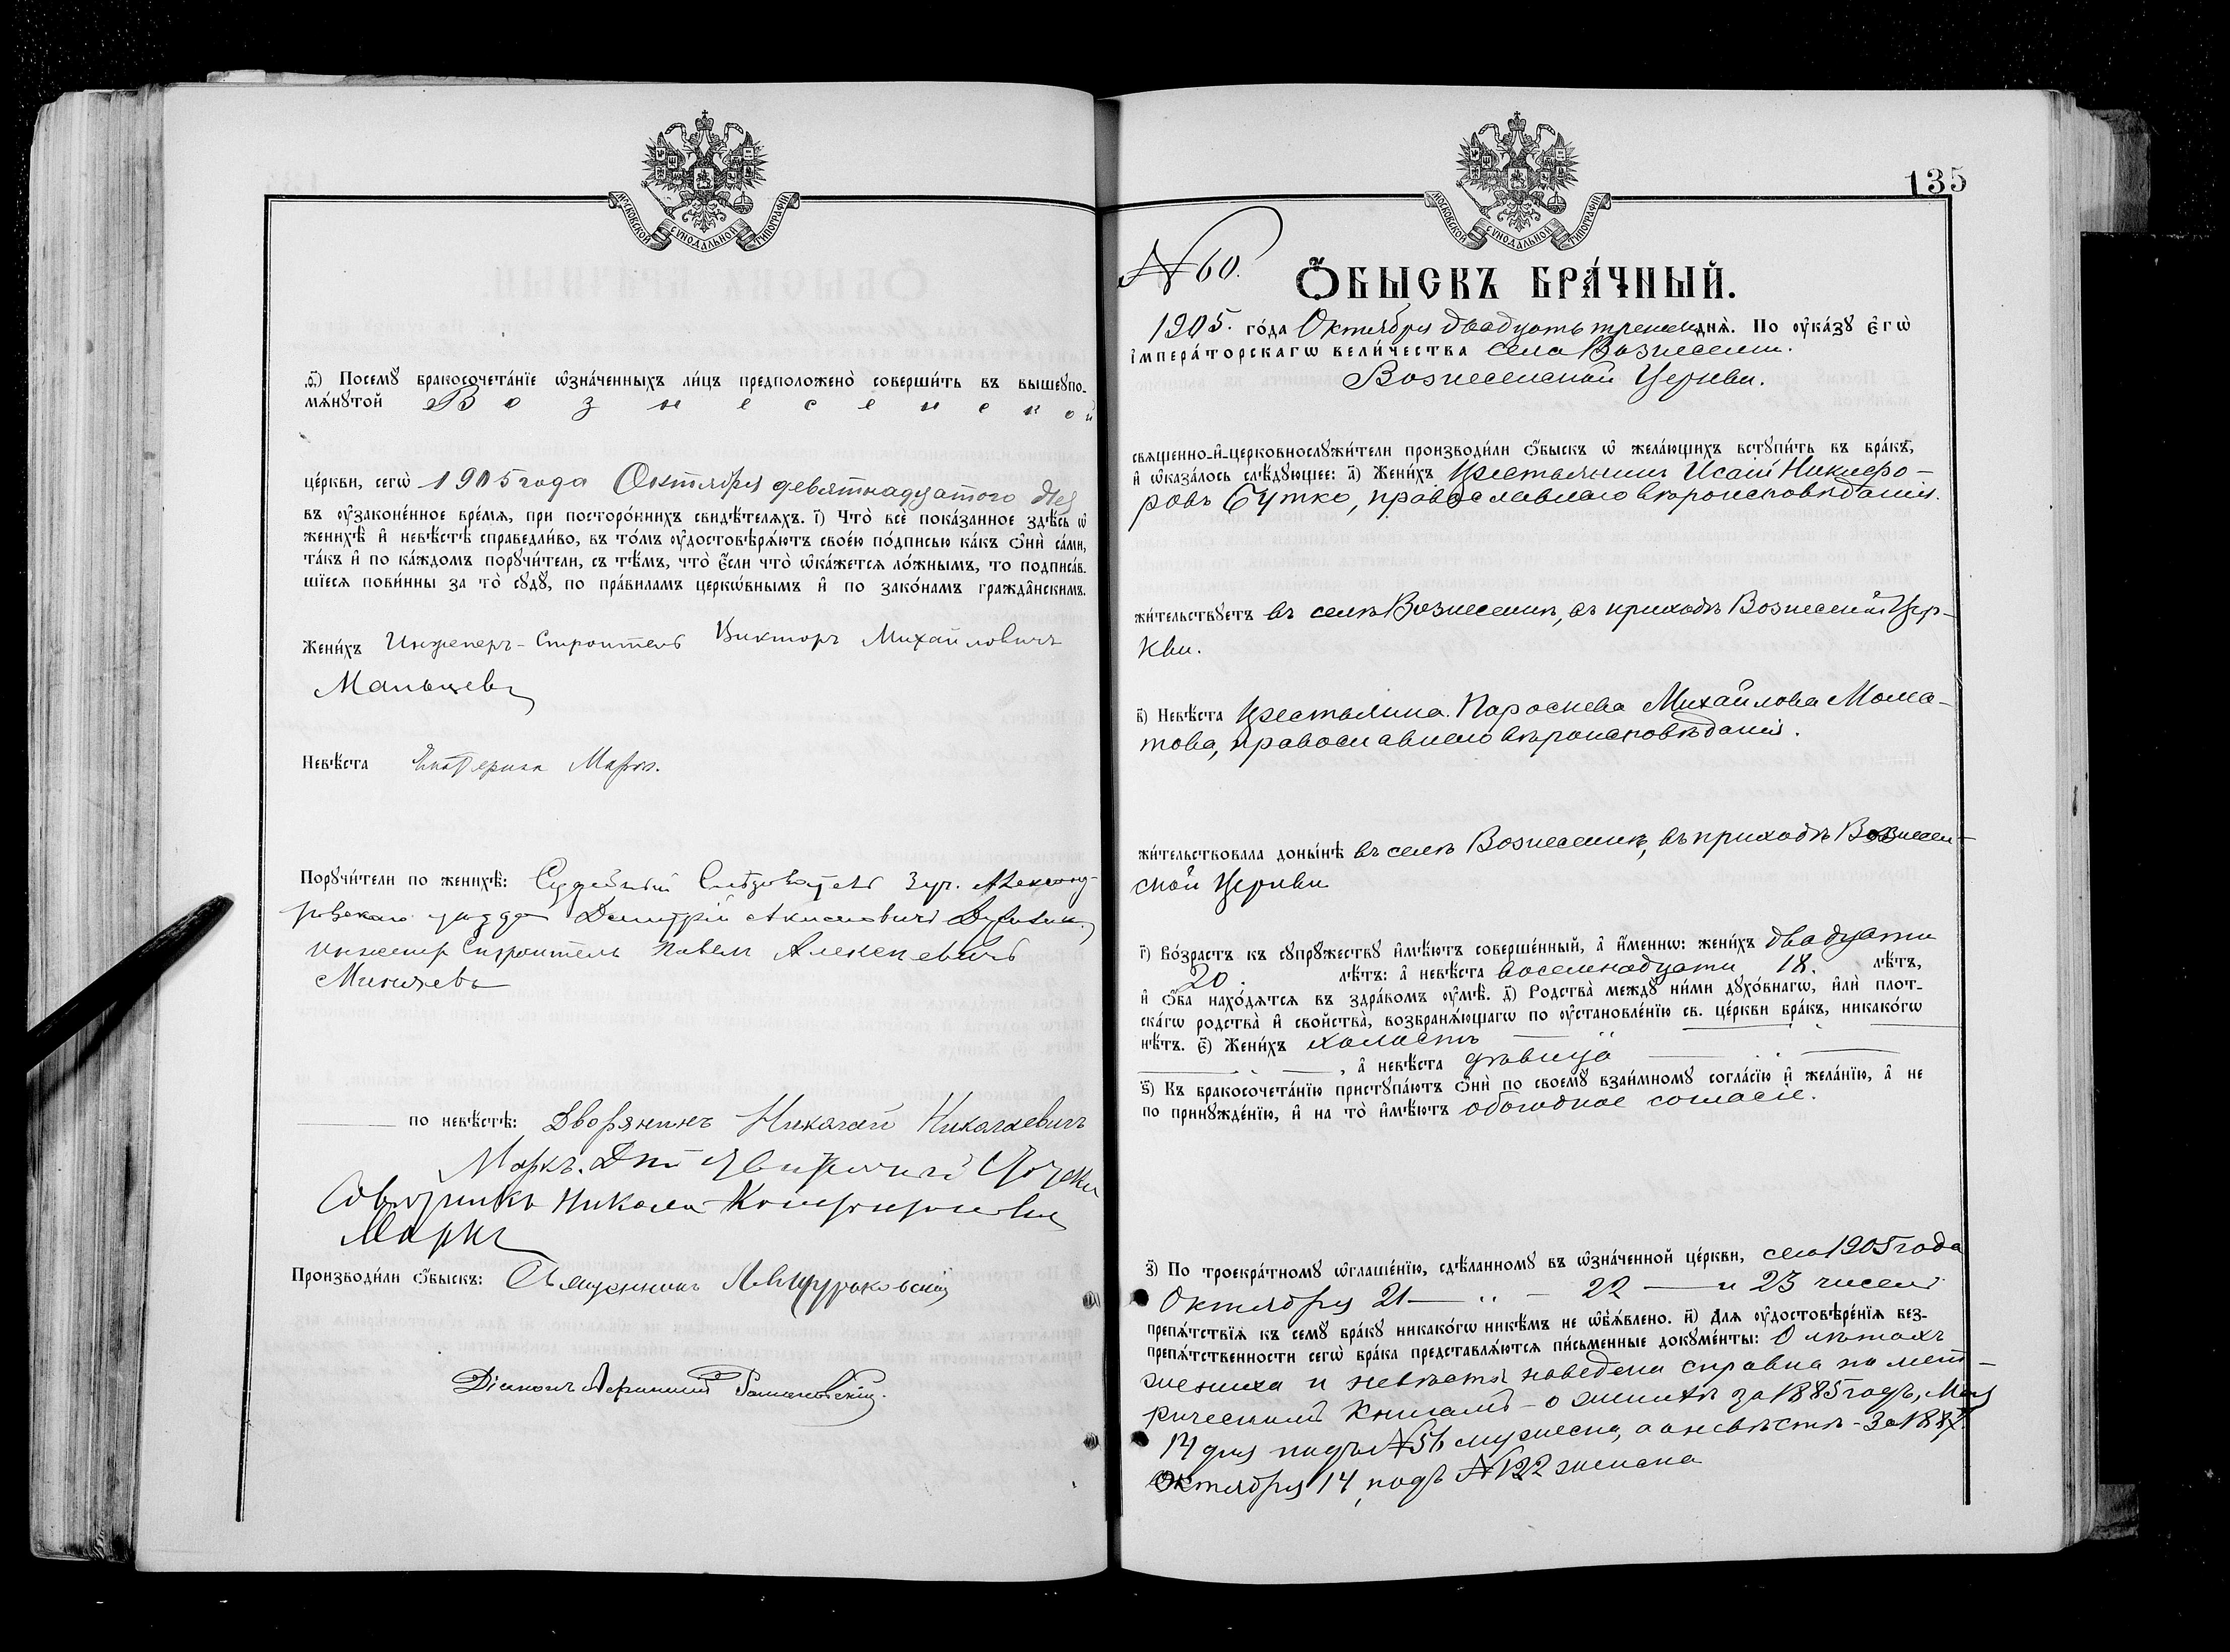 МОСКОВСКОЙ СУНОДАЛЬНОЙ ТИПОГРАФІИ
ѳ҃) Посемꙋ̀ бракосочета́нїе ѡ҆зна́ченныхъ ли́цъ предположено̀ соверши́ть въ вышеꙋпо-
мѧ́нꙋтой Вознесенской
це́ркви, сегѡ̀ 1905 года Октября девятнадцатого дня
въ ᲂу҆законе́нное вре́мѧ, при посторо́ннихъ свидѣ́телѧхъ. і҃) Что̀ всѐ пока́занное здѣ́сь ѡ҆
женихѣ̀ и҆ невѣ́стѣ справедли́во, въ то́мъ ᲂу҆достовѣрѧ́ютъ свое́ю по́дписью ка́къ ѻ҆нѝ са́ми,
та́къ и҆ по ка́ждомъ порꙋчи́тели, съ тѣ́мъ, что̀ є҆́сли что̀ ѡ҆ка́жетсѧ ло́жнымъ, то подписа́в-
шїесѧ пови́нны за то̀ сꙋдꙋ̀, по пра́виламъ церкѡ́внымъ и҆ по зако́намъ гражда̑нскимъ.
Жени́хъ Инженеръ-Строитель Викторъ Михайловичъ
Мальцевъ
Невѣ́ста Екатерина Маркъ.
Порꙋчи́тели по женихѣ̀: Судебный Слѣдователь 3 уч. Александ-
ровскаго уѣзда Дмитрій
инженеръ Строитель Павелъ Алексѣевичъ
по невѣ́стѣ: Дворянинъ Николай Николаевичъ
Маркъ.
Совѣтникъ Николай
Маркъ
Производи́ли ѻ҆́быскъ: Священникъ
Діаконъ Романовскій.
135
МОСКОВСКОЙ СУНОДАЛЬНОЙ ТИПОГРАФІИ
№ 60.
Ѻ҆́БЫСКЪ БРА́ЧНЫЙ.
1905. го́да Октября двадцать третьяго днѧ̀. По ᲂу҆ка́зꙋ є҆гѡ̀
і҆мпера́торскагѡ вели́чества села Вознесенки.
Вознесенской Церкви.
свѧщенно-и҆-церковнослꙋжи́тели производи́ли ѻ҆́быскъ ѡ҆ жела́ющихъ встꙋпи́ть въ бра́къ,
и҆ ѡ҆каза́лось слѣ́дꙋющее: а҃) Жени́хъ Крестьянинъ Исаій Никифо-
ровъ Бутко, православнаго вѣроисповѣданія.
жи́тельствꙋетъ въ селѣ Вознесенкѣ, въ приходѣ Вознесенской Цер-
кви.
в҃) Невѣ́ста Крестьянка Параскева Михайлова Мома-
това, православнаго вѣроисповѣданія.
жи́тельствовала доны́нѣ въ селѣ Вознесенкѣ, въ приходѣ Вознесен-
ской Церкви
г҃) Во́зрастъ къ сꙋпрꙋ́жествꙋ и҆мѣ́ютъ соверше́нный, а҆ и҆́меннѡ: жени́хъ двадцати
20. лѣ́тъ: а҆ невѣ́ста восемнадцати 18. лѣ́тъ,
и҆ ѻ҆́ба нахо́дѧтсѧ въ здра́вомъ ᲂу҆мѣ̀. д҃) Родства̀ междꙋ̀ ни́ми дꙋхо́внагѡ, и҆лѝ плот-
ска́гѡ родства̀ и҆ сво́йства̀, возбранѧ́ющагѡ по ᲂу҆становле́нїю св. це́ркви бра́къ, никако́гѡ
нѣ́тъ. є҃) Жени́хъ холостъ
, а҆ невѣ́ста дѣвица
ѕ҃) Къ бракосочета́нїю пристꙋпа́ютъ ѻ҆нѝ по своемꙋ̀ взаи́мномꙋ согла́сїю и҆ жела́нїю, а҆ не
по принꙋжде́нїю, и҆ на то̀ и҆мѣ́ютъ обоюдное согласіе.
з҃) По троекра́тномꙋ ѡ҆глаше́нїю, сдѣ́ланномꙋ въ ѡ҆зна́ченной це́ркви, сего 1905 года
Октября 21 — „ — 22 — и 23 чиселъ
препѧ́тствїѧ къ семꙋ̀ бра́кꙋ никако́гѡ никѣ́мъ не ѡ҆б̾ѧ́влено. и҃) Длѧ ᲂу҆достовѣре́нїѧ без-
препѧ́тственности сегѡ̀ бра́ка представлѧ́ютсѧ пи́сьменные докꙋме́нты: О лѣтахъ
жениха и невѣсты наведена справка по мет-
рическимъ книгамъ – о женихѣ за 1885 годъ, Мая
14 дня подъ № 56 мужеска, а о невѣстѣ – за 1887.
Октября 14, подъ № 122 женска